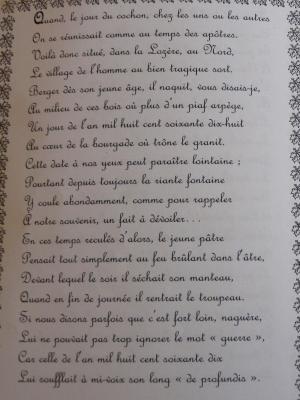 Quand, le jour du cochon, chez les uns ou les autres
On se réunissait comme au temps des apôtres.
Voilà donc situé, dans la Lozère, au Nord,
Le village de l'homme au bien tragique sort.
Berger dès son jeune âge, il naquit, vous disais-je,
Au milieu de ces bois où plus d'un piaf arpège,
Un jour de l'an mil huit cent soixante dix-huit
Au cœur de la bourgade où trône le granit.
Cette date à nos yeux peut paraître lointaine ;
Pourtant depuis toujours la riante fontaine
Y coule abondamment, comme pour rappeler
A notre souvenir, un fait à dévoiler...
En ces temps reculés d'alors, le jeune pâtre
Pensait tout simplement au feu brûlant dans l'âtre,
Devant lequel le soir il séchait son manteau,
Quand en fin de journée il rentrait le troupeau.
Si nous disons parfois que c'est fort loin, naguère,
Lui ne pouvait pas trop ignorer le mot « guerre »,
Car celle de l'an mil huit cent soixante dix
Lui soufflait à mi-voix son long « de profundis ».